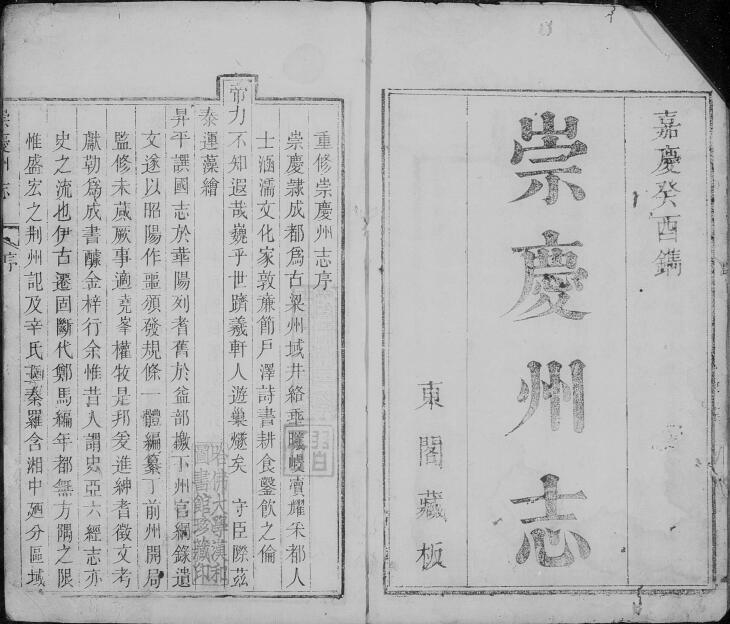 嘉慶癸酉鐫
崇慶州志
東閣藏板
重修崇慶州志序
崇慶隸成都為古梁州域井絡垂曦幔瀆耀采都人
士涵濡文化家敦亷簡戶澤詩書耕食鑿飲之倫
帝力不知遐哉巍乎世躋羲軒人遊巢燧矣守臣際茲
泰運藻繪
昇平譔國志於華陽列耆舊於益部檄下州官綱錄遺
文遂以昭陽作噩頒發規條一體編纂丁前州開局
監修未蕆厥事適堯峯權牧是邦爰進紳耆徵文考
獻勒為成書醵金梓行余惟昔人謂史亞六經志亦
史之流也伊古遷固斷代鄭馬編年都無方隅之限
惟盛宏之荆州記及辛氏三秦羅含湘中廼分區域
崇慶州志
序
哈佛大學漢和
圖書館珍藏印